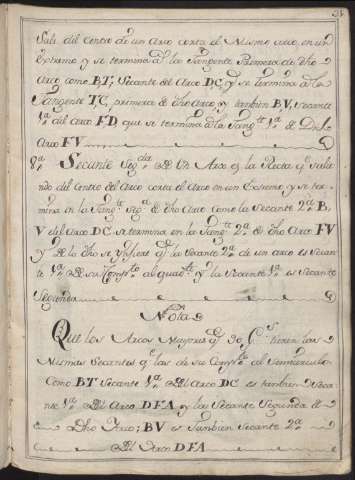 Sale del Centro de un Arco corta el Mismo arco en un
Extremo y se termina a la Tangente Primera de dho
Arco como BT; Secante del Arco DC, q se termina a la
Tangente TC, primera de dho Arco y tambien BV, Secante
1ª del Arco FD, que se termina a la Tangte 1ª de Dicho
Arco FV
8ª Secante Segda del Arco es la Recta q sale
ndo del Centro del Arco corta el Arco en un Extremo y se ter
mina en la Tangte Segª de dho Arco como la Secante 2ª B
V del Arco DC se termina en la Tangte 2ª de dho Arco FV
y de lo dho se ynfiere q la Secante 2ª de un arco es Secan
te 1ª de su Compto al quadte y la Secante 1ª es Secante
Segunda
Nota
Que los Arcos Mayores q 90 Gs tienen las
Mismas Secantes q los de su Complto al Semicirculo
Como BT Secante 1ª del Arco DC es tambien Seca
nte 1ª del Arco DFA y la Secante Segunda de
Dho Arco; BV es Tambien Secante 2ª
del Arco DFA